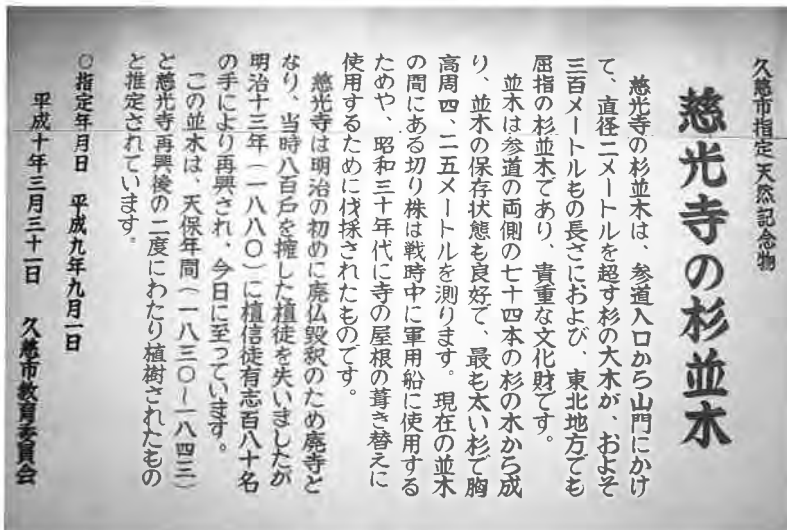 久慈市指定天然記念物
慈光寺の杉並木
慈光寺の杉並木は、参道入口から山門にかけ
て、直径二メートルを超す杉の大木が、およそ
三百メートルもの長さにおよび、東北地方でも
屈指の杉並木であり、貴重な文化財です。
並木は参道の両側の七十四本の杉の木から成
り、並木の保存状態も良好で、最も太い杉で胸
高周四、二五メートルを測ります。現在の並木
の間にある切り株は戦時中に軍用船に使用する
ためや、昭和三十年代に寺の屋根の葺き替えに
使用するために伐採されたものです。
慈光寺は明治の初めに廃仏毀釈のため廃寺と
なり、当時八百戸を擁した檀徒を失いましたが
明治十三年(一八八〇)に檀信徒有志百八十名
の手により再興され、今日に至っています。
この並木は、天保年間(一八三〇ー一八四三)
と慈光寺再興後の二度にわたり植樹されたもの
と推定されています。
○指定年月日 平成九年九月一日
平成十年三月三十一日 久慈市教育委員会